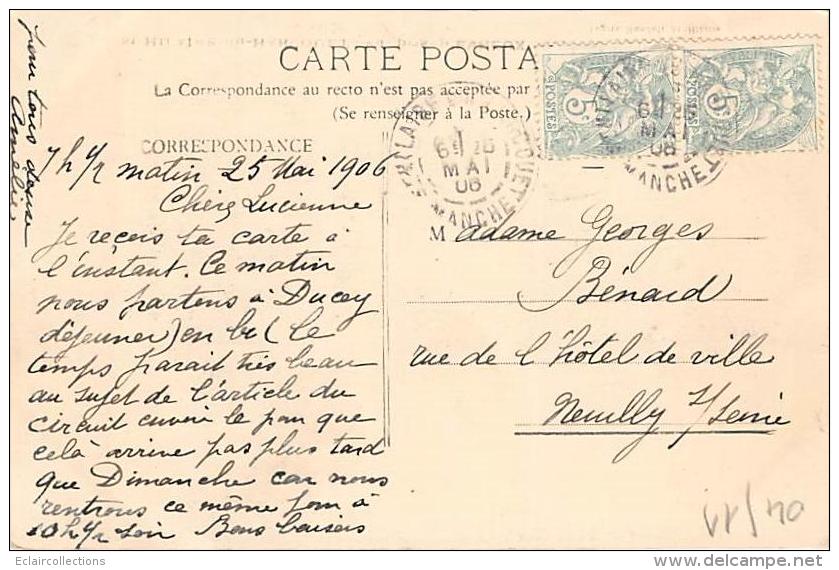 CARTE POSTA
La Correspondance au recto n'est pas acceptée par
(Se renseigner à la Poste.)
CORRESPONDANCE
7 h 1/2 matin 25 Mai 1906
Chère Lucienne
Je reçois ta carte à
l'instant. Ce matin
nous partons à Ducey
déjeuner) en bu( le
temps parait très beau
au sujet de l'article du
circuit envoie le pour que
celà arrive pas plus tard
que Dimanche car nous
rentrons ce même jour à
10 h 1/2 soir Bons baisers
pour tous deux
Amélie
Madame Georges
Bénard
rue de l'hôtel de ville
Neuilly s/Seine
5c
POSTES
5c
MAI
06
MANCHE
MAI
06
MANCHE
Eclaircollections
www.delcampe.net